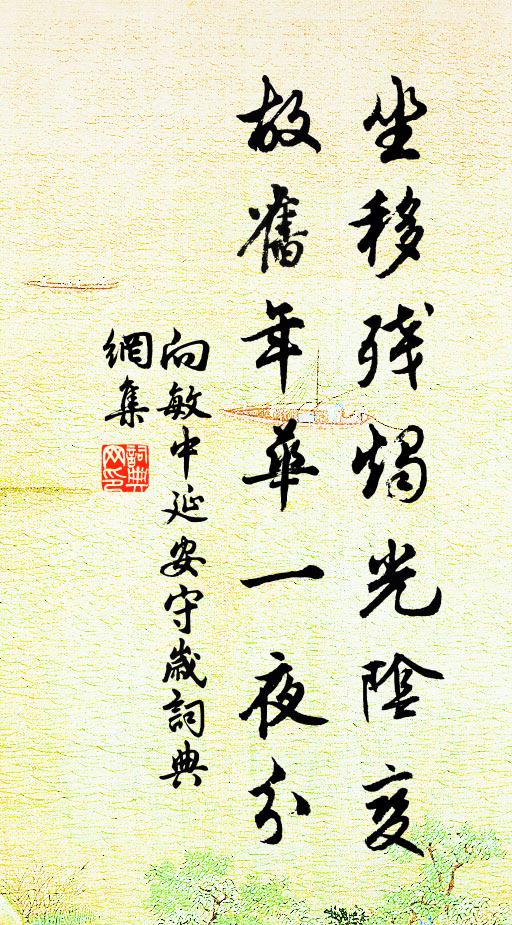 坐移残燭光陰变
故舊年華一夜分
向敏中延安守歲詞典
網集
詞典
网印